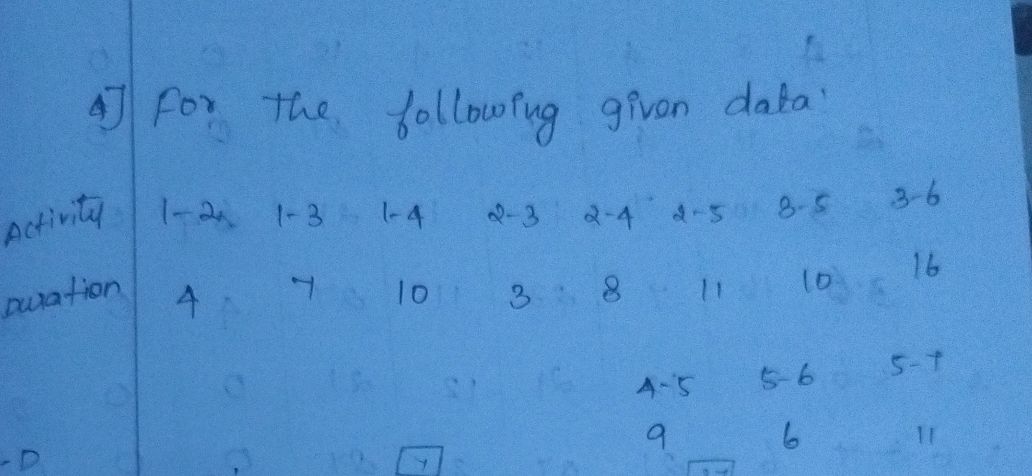 4] For the following given data
Activity 1-2 1-3 1-4 2-3 2-4 2-5 3-5 3-6
Duration 4 7 10 3 8 11 10 16
4-5 5-6 5-7
9 6 11
-D